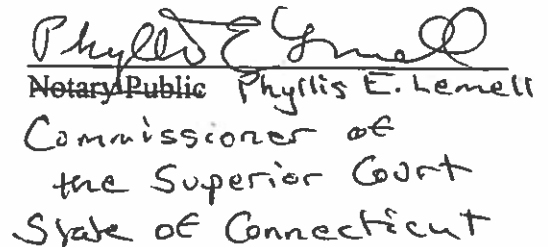 Phyllis E Lemell
Notary Public Phyllis E. Lemell
Commissioner of
the Superior Court
State of Connecticut